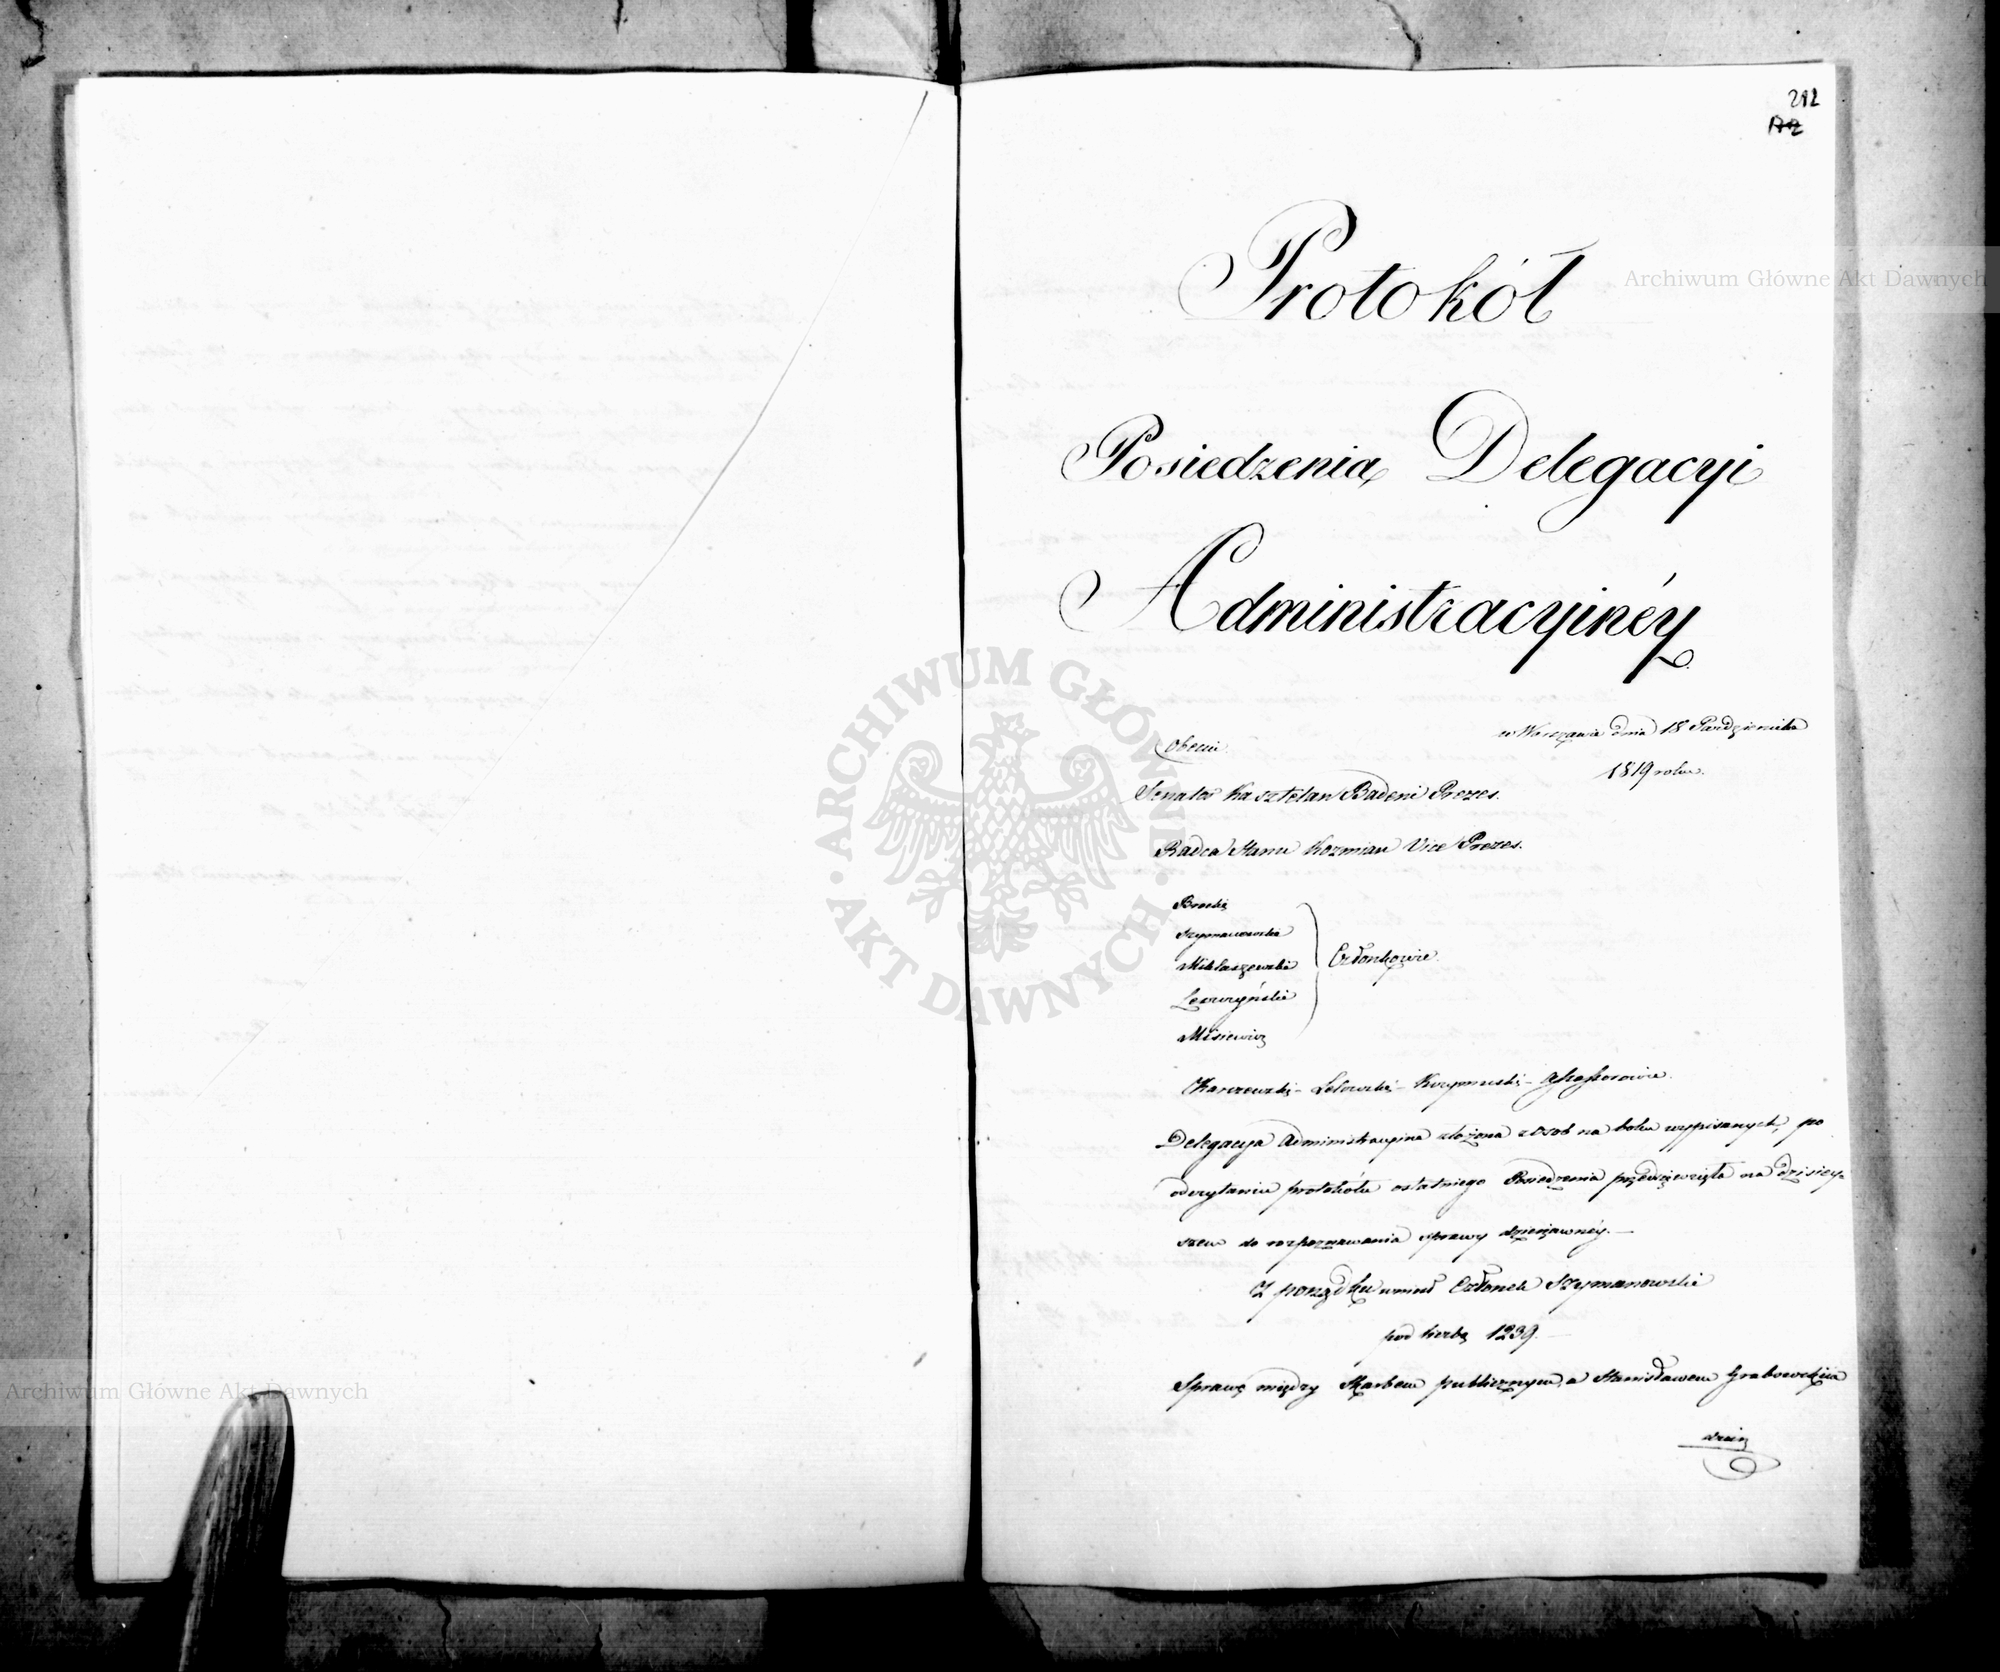 212
172
Protokół
Posiedzenia Delegacyi
Administracyinéy
w Warszawie dnia 18 Października
1819 roku.
Obecni
Senator Kasztelan Badeni Prezes.
Radca Stanu Kozmian Vice Prezes.
Brocki
Szymanowski
Miklaszewski
Członkowie.
Leszczyński
Misiewicz
Karczewski - Lelowski - - Assessorowie.
Delegacya Administracyina złożona z osób na boku wypisanych, po
odczytaniu protokółu ostatniego Posiedzenia przedsięwzięła na dzisiey-
szem do rozpoznawania sprawy dzierżawnéy. —
Z porządku wniósł Członek Szymanowski
pod liczbą 1239. —
Sprawę między Skarbem publicznym, a Stanisławem Grabowskim
Archiwum Główne Akt Dawnych
Archiwum Główne Akt Dawnych
ARCHIWUM GŁÓWNE
AKT DAWNYCH